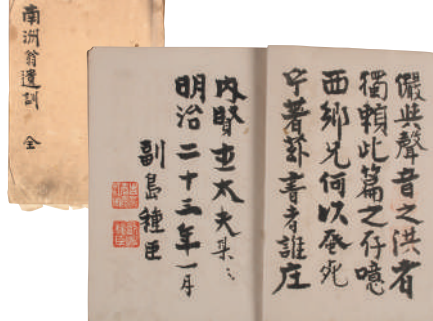 南洲翁遺訓 全
儼與聲音之洪者
獨頼此篇之存噫
西郷兄何以蚤死
乎著茲書者誰庄
内賢士大夫某々
明治二十三年一月
副島種臣